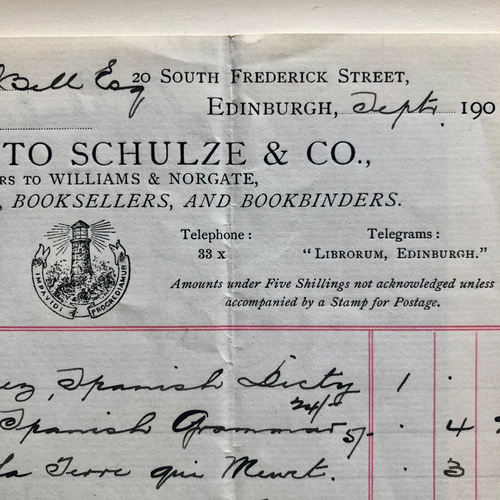 Bell Esq 20 SOUTH FREDERICK STREET,
EDINBURGH, Sept. 190
TO SCHULZE & CO.,
RS TO WILLIAMS & NORGATE,
, BOOKSELLERS, AND BOOKBINDERS.
Telephone : Telegrams :
33 x "LIBRORUM, EDINBURGH."
IMPAVIDI PROGREDIAMUR
Amounts under Five Shillings not acknowledged unless
accompanied by a Stamp for Postage.
ez, Spanish Dicty 1 .
24/-
Spanish Grammar 5/- . 4
La Terre qui Meurt. . 3